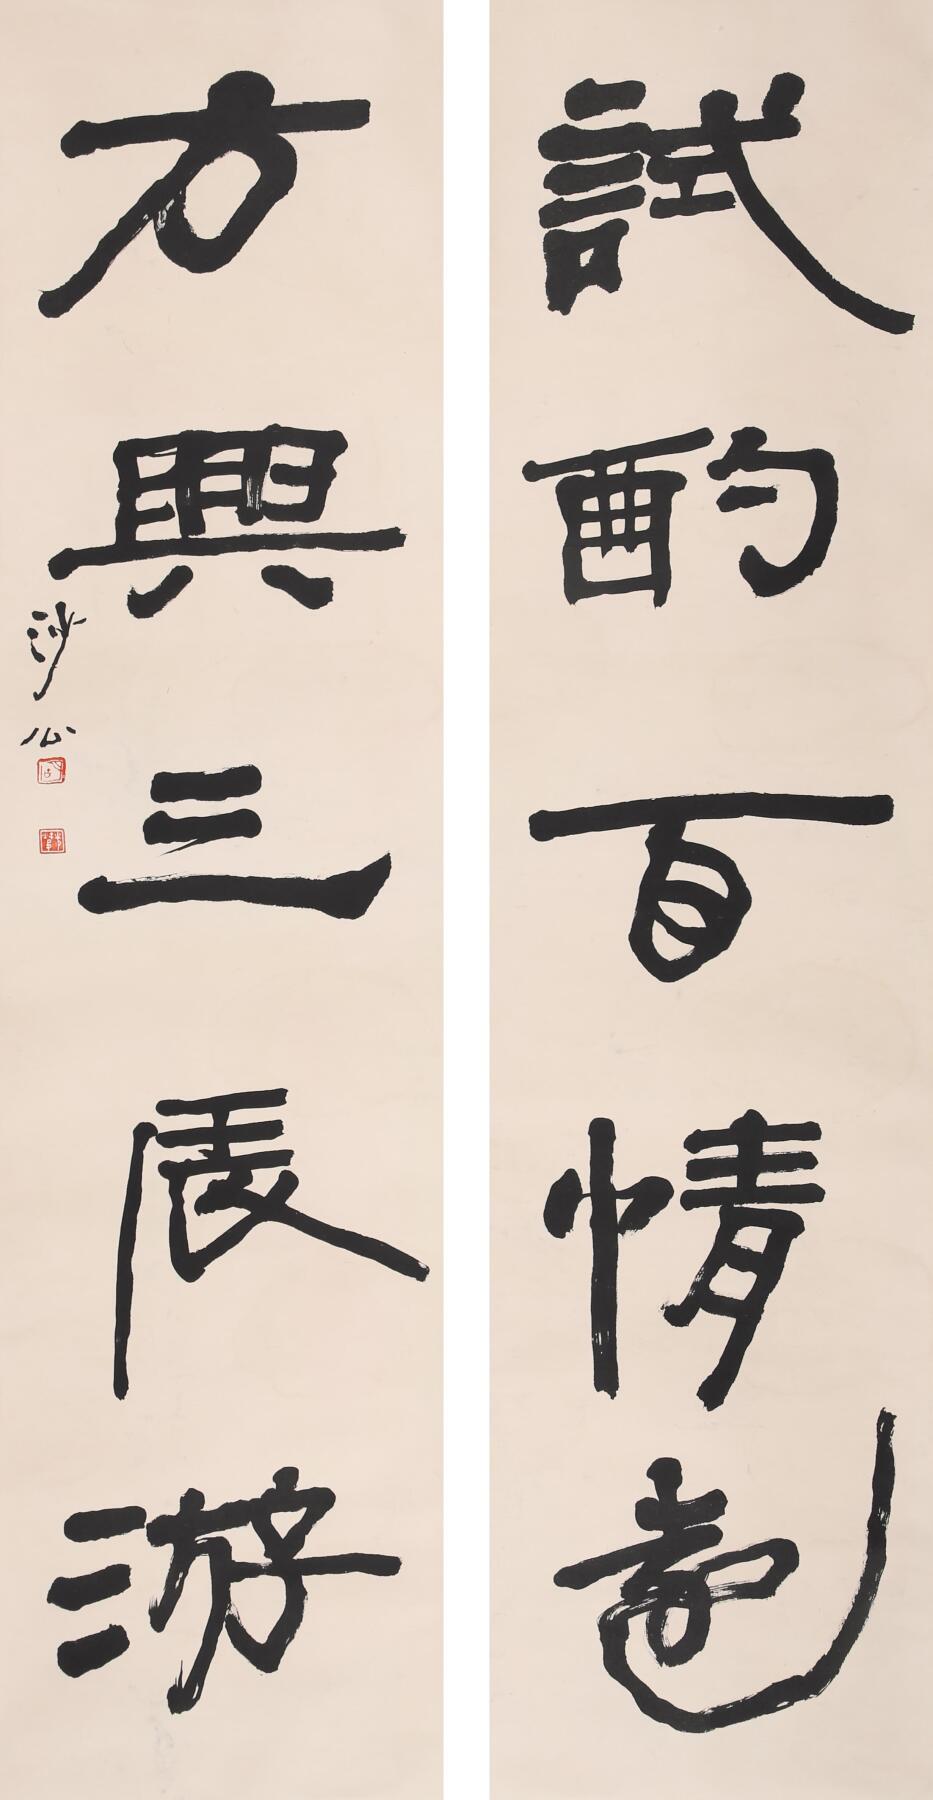 試酌百情遠
方與三辰游
沙公